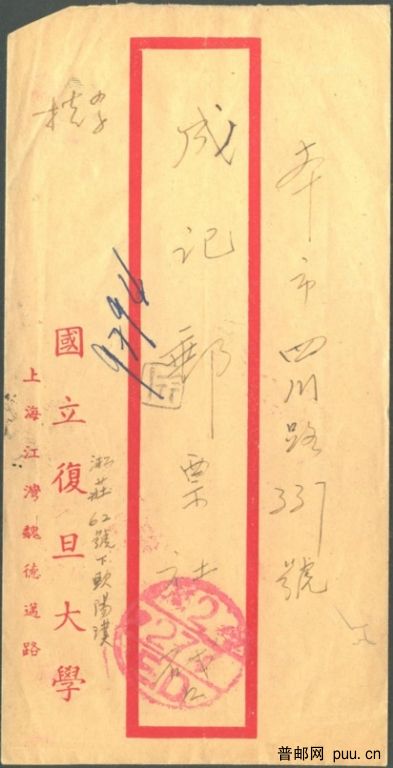 本市四川路337號
成記郵票社
啟
9794
國立復旦大學
上海江灣魏德邁路
淞莊62號下歐陽漢
27
普邮网 puu.cn